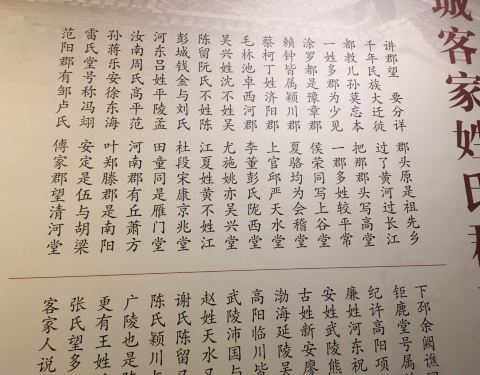 城客家姓氏郡
讲郡望 要分详 郡头原是祖先乡
千年民族大迁徙 过了黄河过长江
都教儿孙莫忘本 把那郡头写高堂
一姓多郡为少见 一郡多姓较平常
涂罗都是豫章郡 侯荣同写上谷堂
赖钟皆属颍川郡 夏骆均为会稽堂
蔡柯丁姓济阳郡 上官邱严天水堂
毛林池卓西河郡 李董彭氏陇西堂
吴兴姓沈不姓吴 尤施姚亦吴兴堂
陈留阮氏不姓陈 江夏姓黄不姓江
彭城钱金与刘氏 杜段宋康京兆堂
河东吕姓平陵孟 田童同是雁门堂
汝南周氏高平范 河南郡有丘萧方
孙蒋乐安徐东海 叶郑滕郡是南阳
雷氏堂号称冯翊 安定是伍与胡梁
范阳郡有邹卢氏 傅家郡望清河堂
下邳余阙谯国
钜鹿堂号属
纪许高阳项
廉姓河东祝
安姓武陵熊
古姓新安廖
渤海延陵吴
高阳临川皆
武陵沛国与
赵姓天水又
谢氏陈留
陈氏颍川
广陵也是陈
更有王姓
张氏望多
客家人说